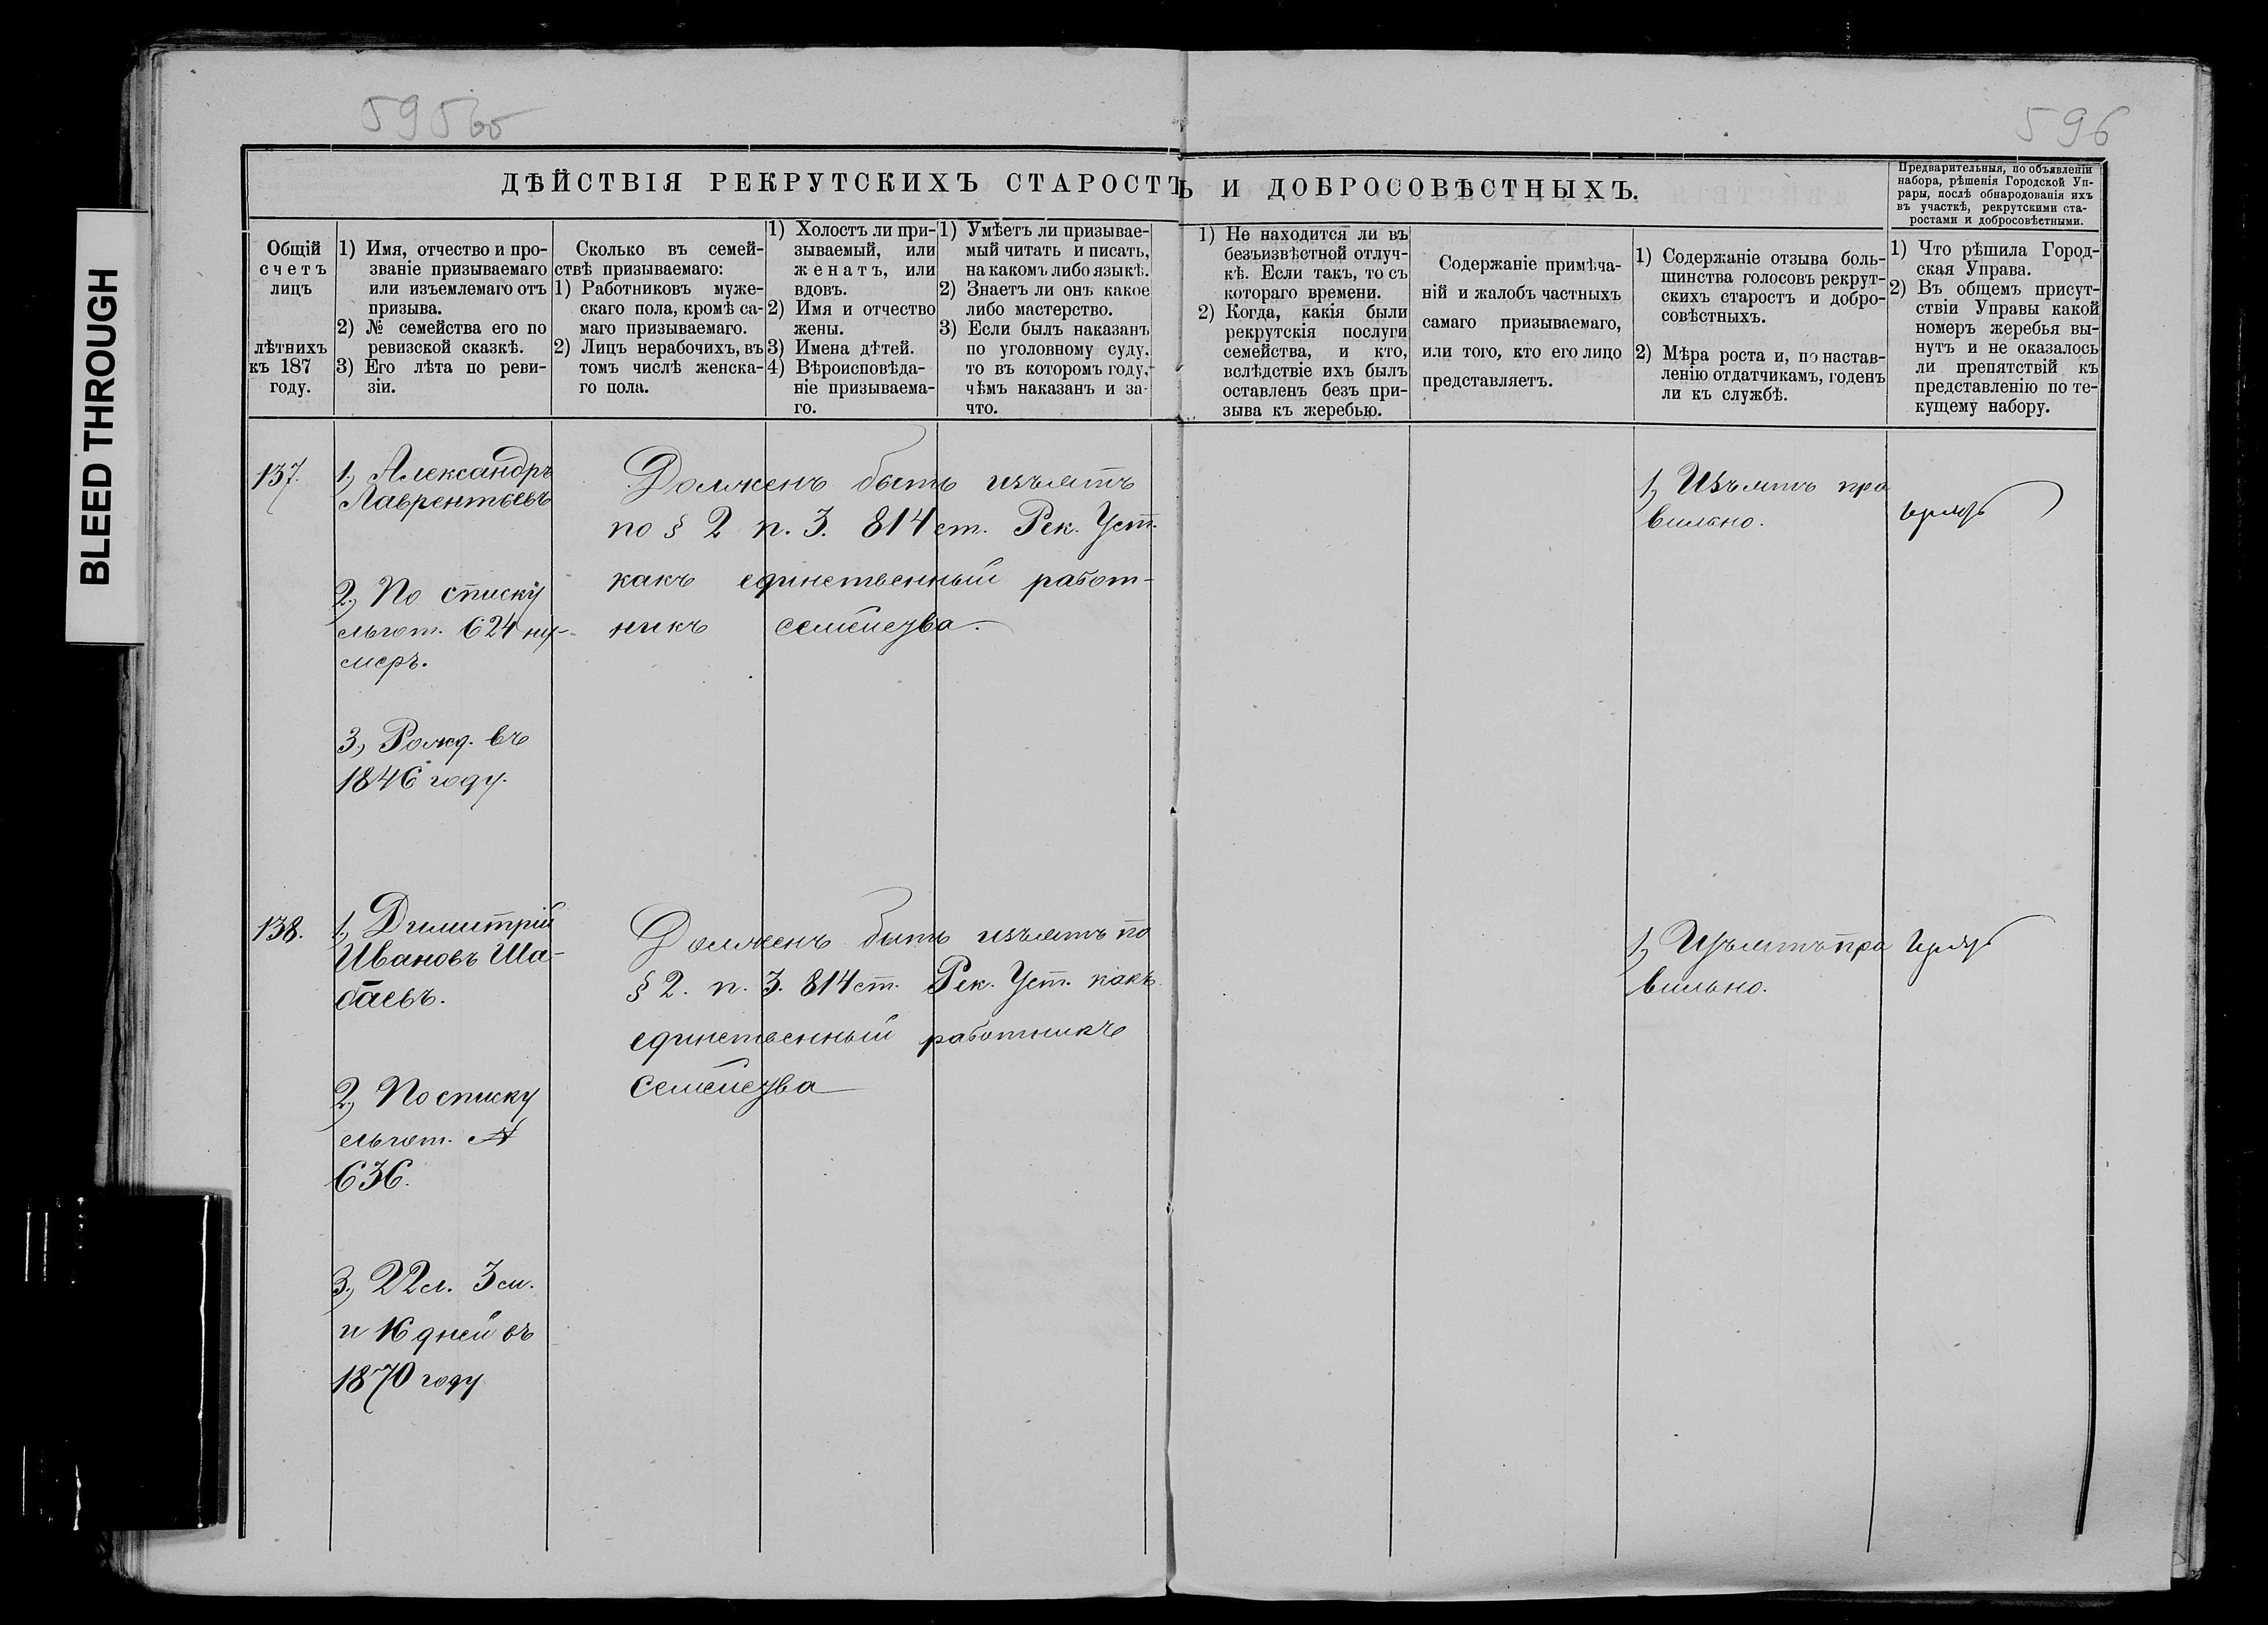 595об
596
BLEED THROUGH
ДѢЙСТВІЯ РЕКРУТСКИХЪ СТАРОСТЪ И ДОБРОСОВѢСТНЫХЪ.
Предварительныя, по объявленіи
набора, рѣшенія Городской Уп-
рары, послѣ обнародованія ихъ
въ участкѣ, рекрутскими ста-
ростами и добросовѣстными.
Общій
счетъ
лицъ
лѣтнихъ
къ 187
году.
1) Имя, отчество и про-
званіе призываемаго
или изъемлемаго отъ
призыва.
2) № семейства его по
ревизской сказкѣ.
3) Его лѣта по реви-
зіи.
Сколько въ семей-
ствѣ призываемаго:
1) Работниковъ муже-
скаго пола, кромѣ са-
маго призываемаго.
2) Лицъ нерабочихъ, въ
томъ числѣ женска-
го пола.
1) Холостъ ли при-
зываемый, или
женатъ, или
вдовъ.
2) Имя и отчество
жены.
3) Имена дѣтей.
4) Вѣроисповѣда-
ніе призываема-
го.
1) Умѣетъ ли призывае-
мый читать и писать,
на какомъ либо языкѣ.
2) Знаетъ ли онъ какое
либо мастерство.
3) Если былъ наказанъ
по уголовному суду,
то въ которомъ году,
чѣмъ наказанъ и за-
что.
1) Не находится ли въ
безъизвѣстной отлуч-
кѣ. Если такъ, то съ
котораго времени.
2) Когда, какія были
рекрутскія послуги
семейства, и кто,
вслѣдствіе ихъ былъ
оставленъ безъ при-
зыва къ жеребью.
Содержаніе примѣча-
ній и жалобъ частныхъ
самаго призываемаго,
или того, кто его лицо
представляетъ.
1) Содержаніе отзыва боль-
шинства голосовъ рекрут-
скихъ старостъ и добро-
совѣстныхъ.
2) Мѣра роста и, по настав-
ленію отдатчикамъ, годенъ
ли къ службѣ.
1) Что рѣшила Город-
ская Управа.
2) Въ общемъ присут-
ствіи Управы какой
номеръ жеребья вы-
нутъ и не оказалось
ли препятствій къ
представленію по те-
кущему набору.
137.
1, Александръ
Лаврентьевъ
2, По списку
льгот. 624 ну-
меръ.
3, Рожд. въ
1846 году.
Долженъ быть изъятъ
по § 2 п. 3. 814 ст. Рек. Уст.
какъ единственный работ-
никъ семейства.
1, Изъятъ пра
вильно.
138.
1, Димитрій
Ивановъ Ша-
баевъ.
2, По списку
льгот. №
636.
3, 22 л. 3 м.
и 16 дней въ
1870 году
Долженъ быть изъятъ по
§ 2. п. 3. 814 ст. Рек. Уст. какъ
единственный работникъ
семейства
1, Изъятъ пра
вильно.